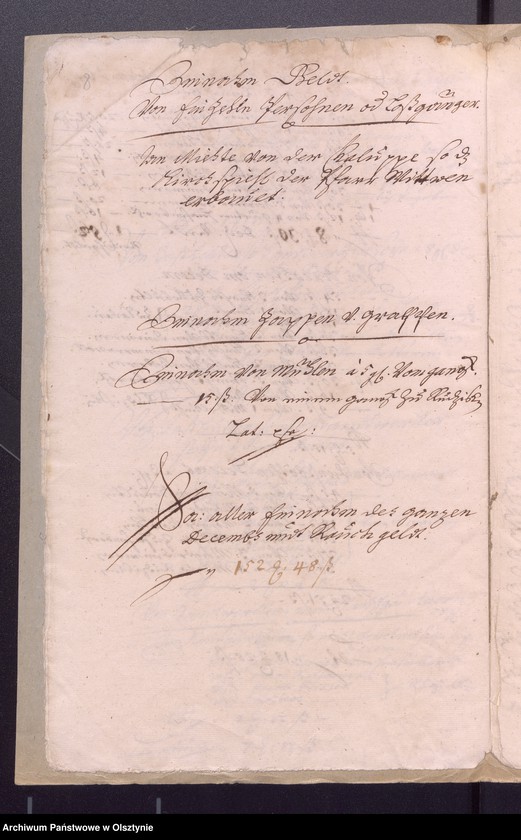 8
Einnahm Geldt
Von Einzehln Persohnen od Loßgänger.
Von Miehte von der Chaluppe so dz
Kirchspiehl der Pfarr Wittwen
erbauet:
Einnahm Zappen v. Graffen.
Einnahm von Mühlen à 5 gl. Von gang
15 ß. Von einem gang zu
Lat: p se:
Sa: aller Einnahm des ganzen
Decembs mit Rauchgeldt.
152 48 ß.
Archiwum Państwowe w Olsztynie